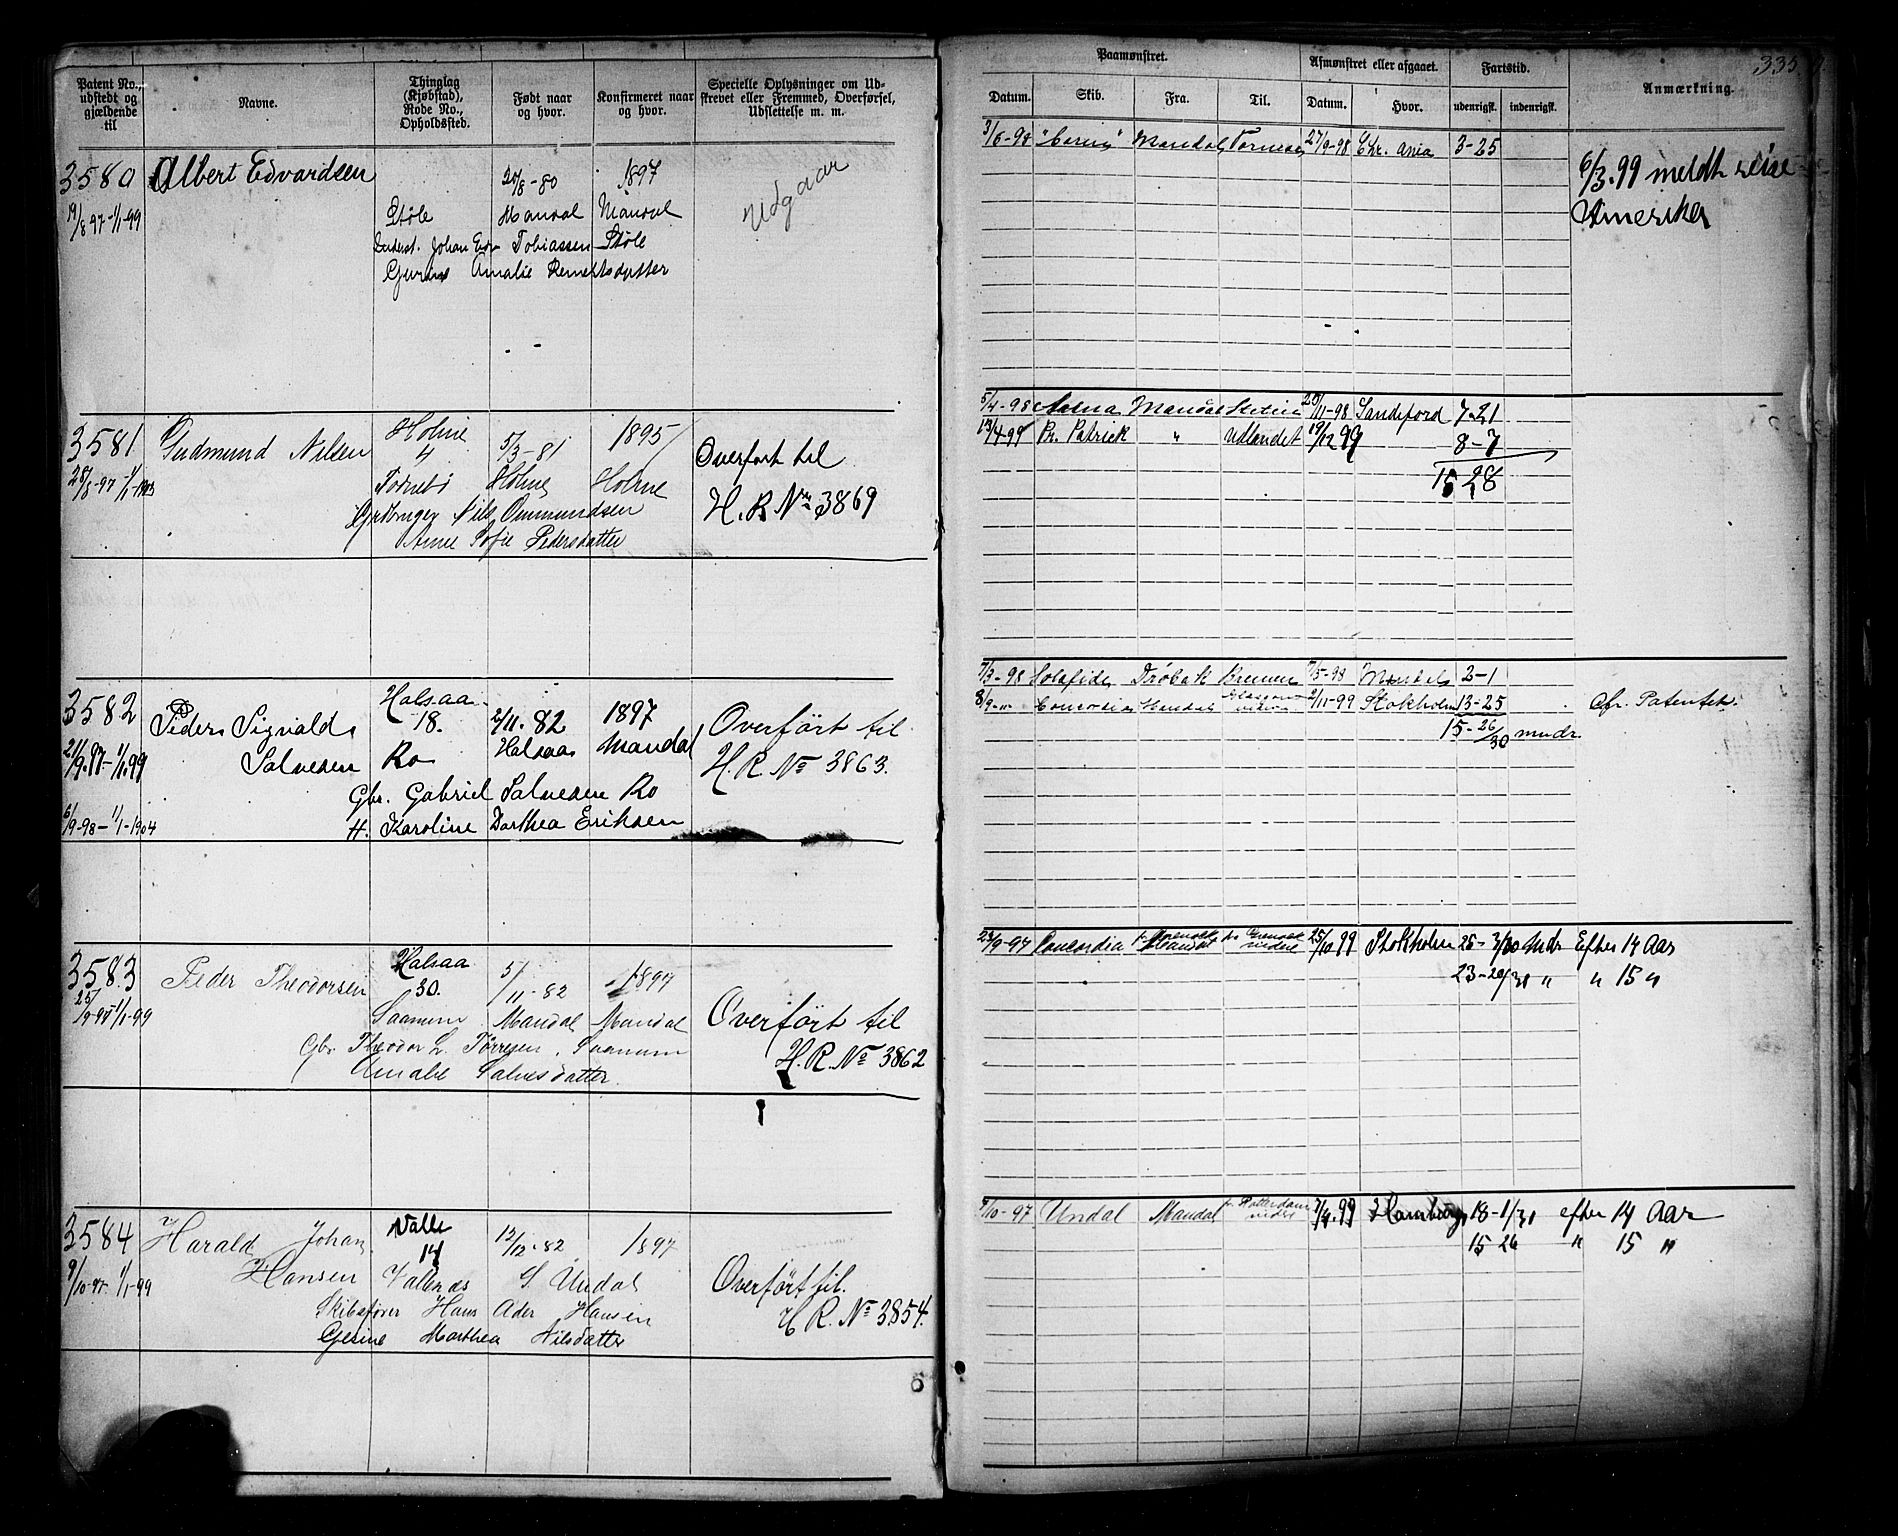 335.
Patent No., udstedt og gjældende til
Navne.
Thinglag (Kjøbstad), Rode No., Opholdssted.
Født naar og hvor.
Konfirmeret naar og hvor.
Specielle Oplysninger om Udstrevet eller Fremmed, Overførsel, Udslettelse m. m.
Paamønstret.
Afmønstret eller afgaaet.
Fartstid.
Anmærkning.
Datum. Skib. Fra. Til. Datum. Hvor. udenrigsk. indenrigsk.
3580 Albert Edvardsen 1897
19/8 97-1/1-99 Støle Mandal Mandal
Udgaar
Tobiassen Støle
Amalie
Mandal 27/9-98 Chr. ania 3-25
6/3.99 meldt reise
Amerika
3581 Gudmund Nilsen Holme 5/3-81 1895
4
Holme Holme
Overført til
H.R No 3869
Nils Ommundsen
Anne Sofie Pedersdatter
5/4-98 Mandal Stetin 25/11-98 Sandefjord 7-21
13/4-99 Pr. Patrick " Udlandet 19/12 99 8-7
15 28
3582 Peder Sigvald Salvesen Halsaa 18. 2/11.82 1897
21/9.97-1/1.99 Ro Halsaa Mandal
6/9-98-1/1-1904
Overført til
H.R. No 3863.
Gbr. Gabriel Salvesen Ro
H. Karoline Dorthea Eriksen
7/3-98 Drøbak Bremen 7/5-98 Mandal 2-1
8/9-" Concordia Mandal 2/11-99 Stokholm 13-25
15-26/30 mndr
Patentet.
3583 Peder Theodorsen Halsaa 30. 5/11-82 1897
25/9-97-1/1-99 Saanum Mandal Mandal
Overført til
H.R. No 3862
Gbr Theodor L. Tørresen, Saanum
Amalie Salvesdatter.
Concordia 25/10 99 Stokholm 25-3/30 Mndr Efter 14 Aar
23-20/30 " " 15 "
3584 Harald Johan Hansen Valle 14 1897
9/10-97 1/1-99 S. Undal
Overført til.
H R. No 3854.
Skibsfører Hans Hansen
Gesine Marthea Nilsdatter
9/10-97 Undal Mandal Rotterdam 7/4.99 Hamburg 18-1/30 efter 14 Aar
15 26 " 15 "